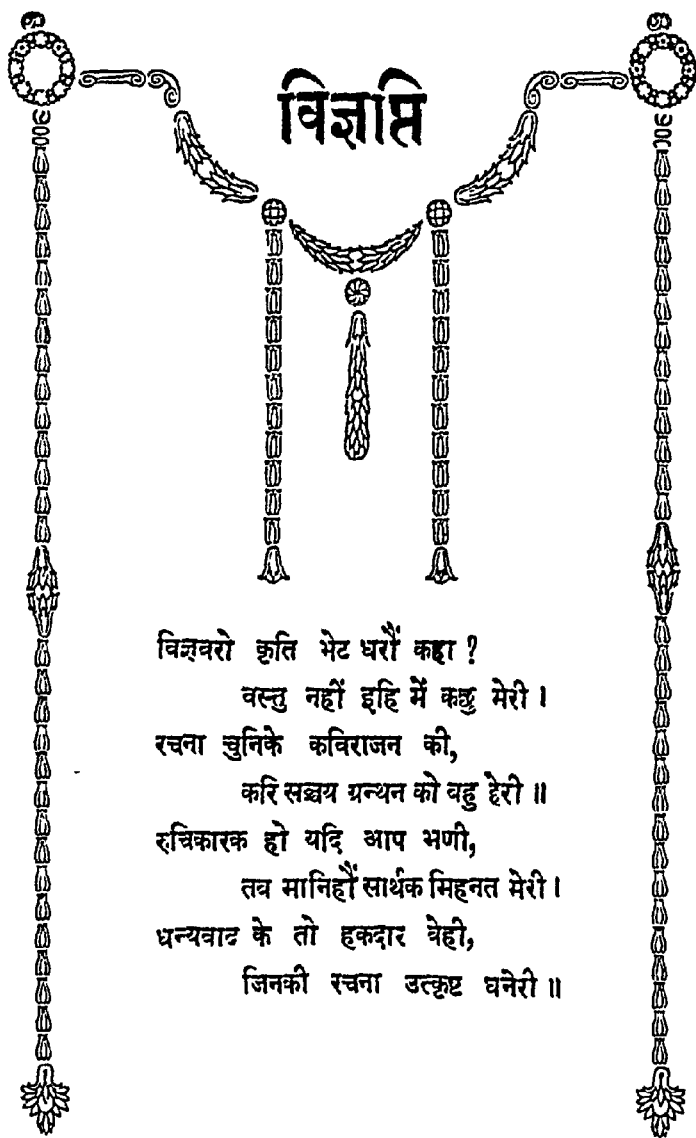 विज्ञप्ति
विज्ञवरो कृति भेट धरौं कहा ?
वस्तु नहीं इहि में कछु मेरी ।
रचना चुनिके कविराजन की,
करि सञ्चय ग्रन्थन को बहु हेरी ॥
रुचिकारक हो यदि आप भणी,
तव मानिहौं सार्थक मिहनत मेरी ।
धन्यवाद के तो हकदार वेही,
जिनकी रचना उत्कृष्ट घनेरी ॥